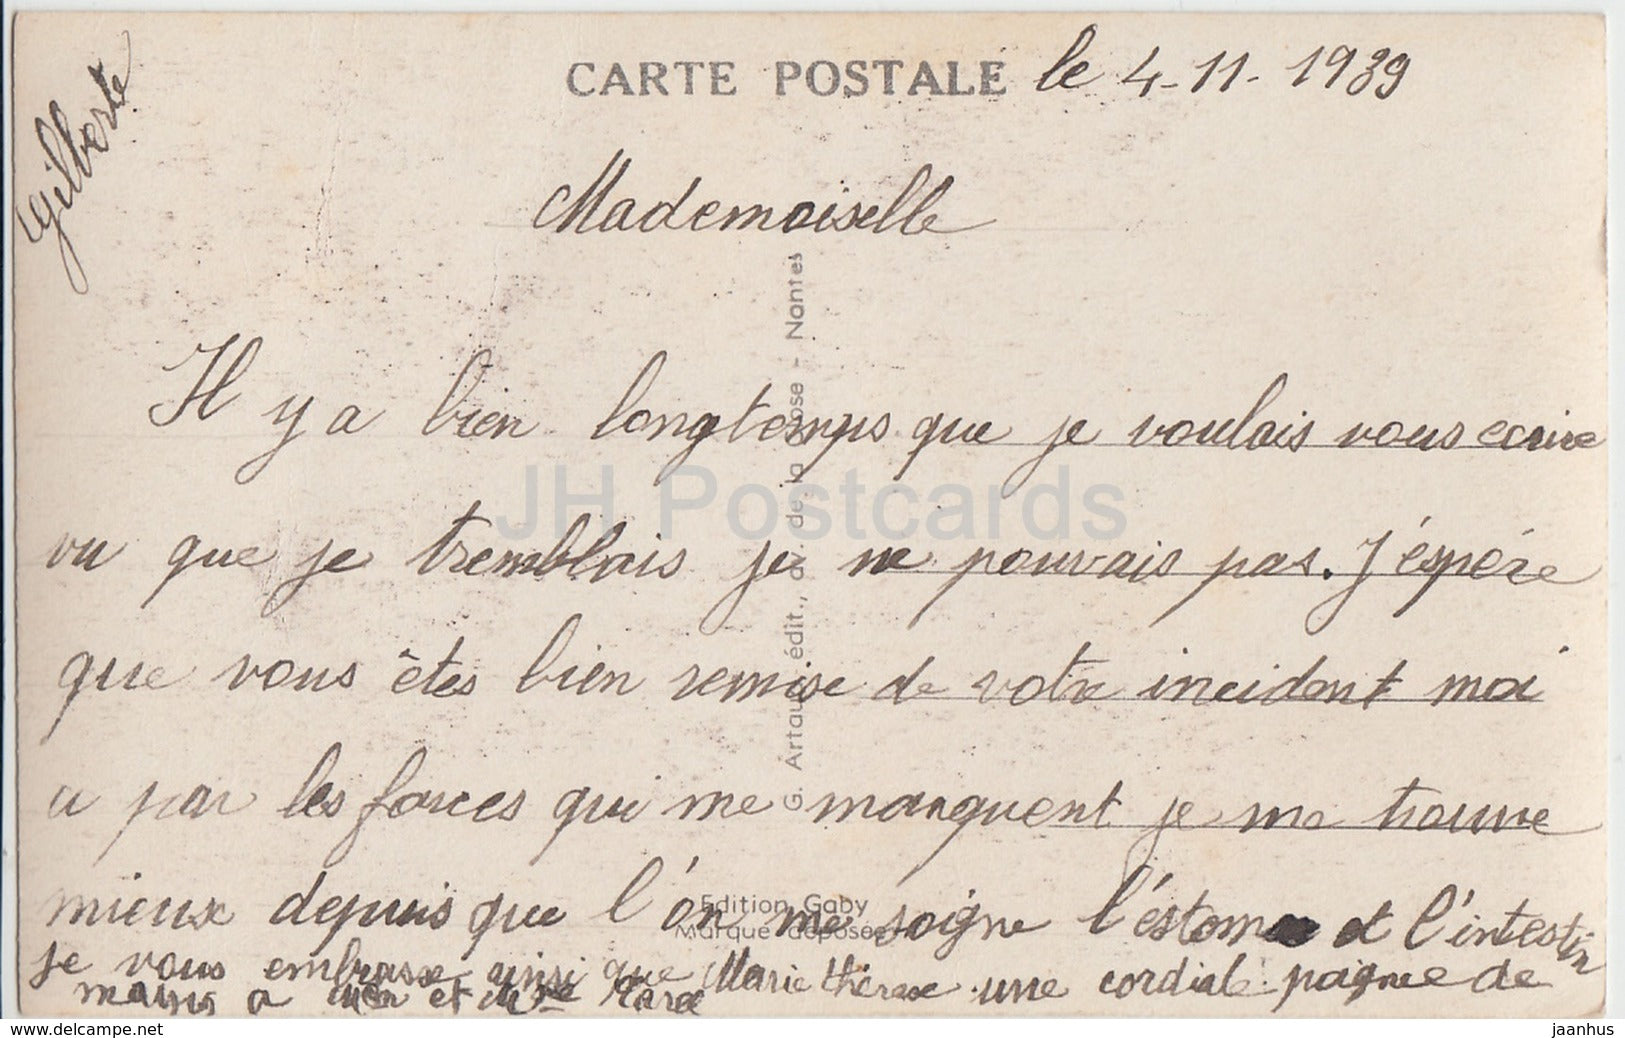 CARTE POSTALE le 4-11-1939
Gilberte
Mademoiselle
Il y a bien longtemps que je voulais vous ecrire
vu que je tremblais je ne pouvais pas. J'éspére
que vous êtes bien remise de votre incident moi
a par les forces qui me manquent je me trouve
mieux depuis que l'on me soigne l'éstomac et l'intestin
je vous embrasse ainsi que Marie thérese une cordiale poignee de
mains a et
G. Artaud édit., av. de la Close - Nantes
Edition Gaby
Marque déposée
JH Postcards
delcampe.net
jaanhus